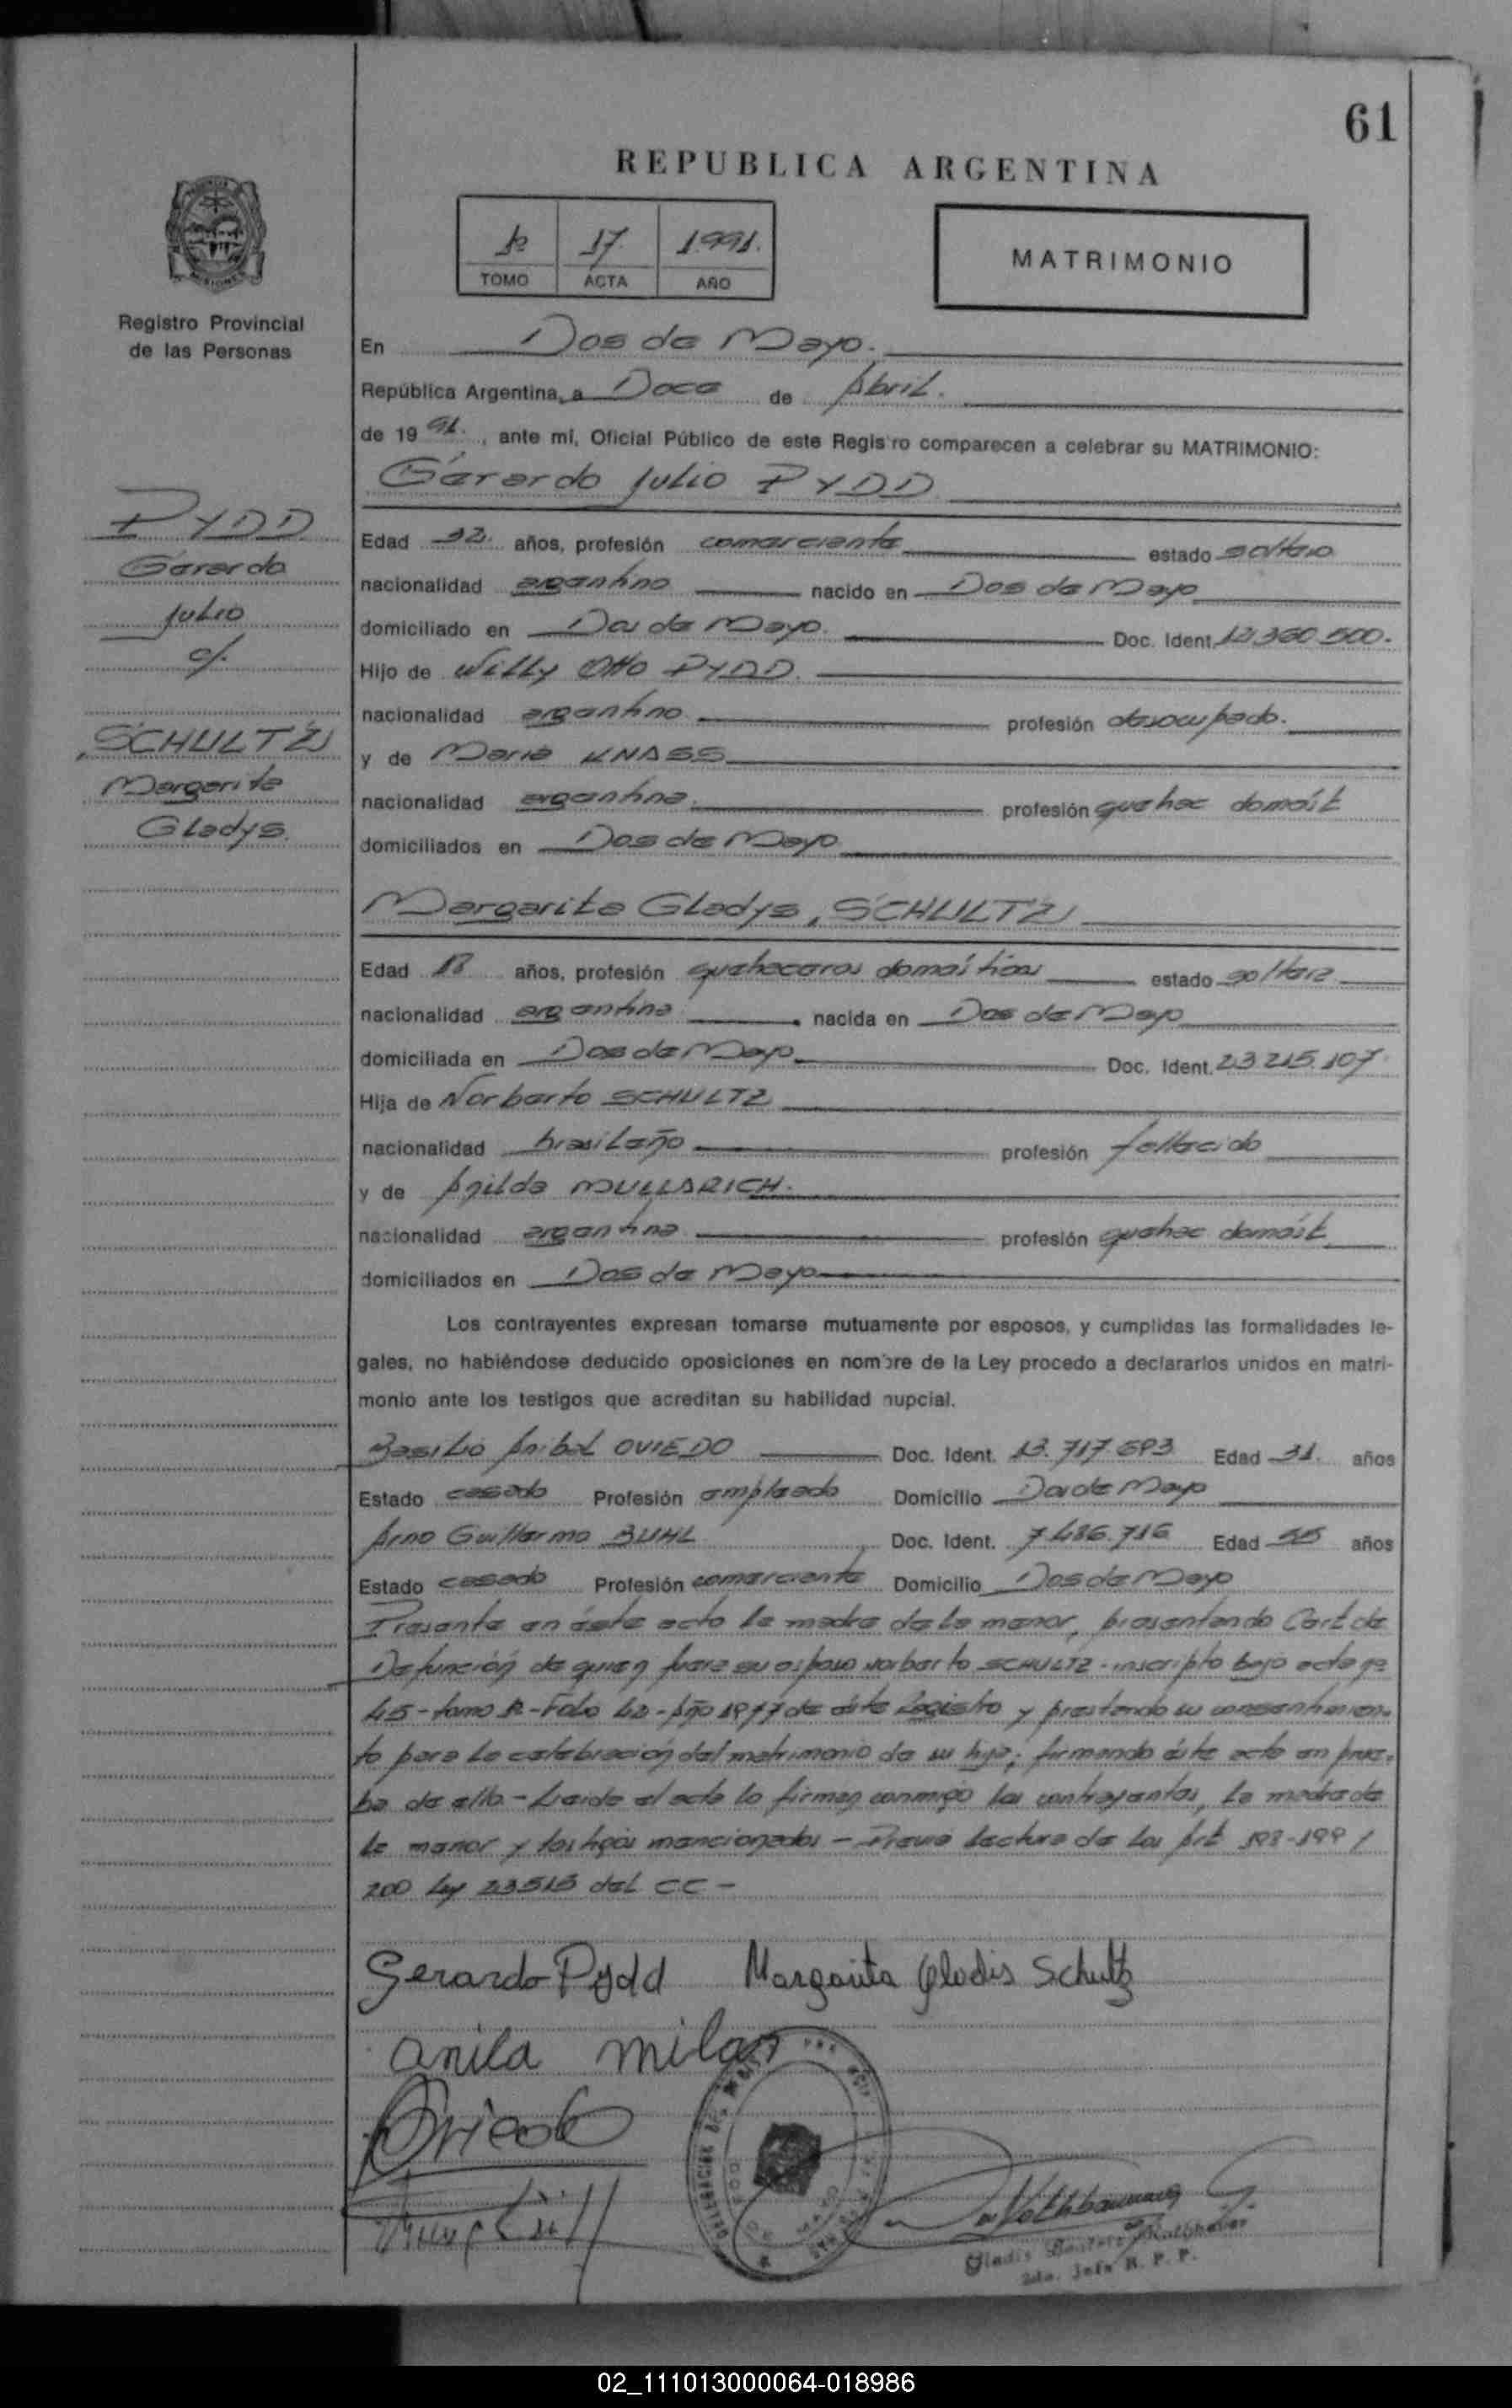 61
REPUBLICA ARGENTINA
17 1991.
TOMO ACTA AÑO
MATRIMONIO
Registro Provincial
de las Personas
En Dos de Mayo.
República Argentina, a Doce de Abril.
de 19 91., ante mí, Oficial Público de este Registro comparecen a celebrar su MATRIMONIO:
Gerardo Julio PYDD
PYDD
Gerardo
Julio
c/.
SCHULTZ
Margarita
Gladys.
Edad 32. años, profesión comerciante estado soltero
nacionalidad argentino nacido en Dos de Mayo
domiciliado en Dos de Mayo. Doc. Ident. 12.360.500.
Hijo de Willy Otto PYDD.
nacionalidad argentino profesión desocupado.
y de Maria KNASS
nacionalidad argentina. profesión quehac domést
domiciliados en Dos de Mayo
Margarita Gladys, SCHULTZ
Edad 18 años, profesión quehaceres domésticos estado soltera
nacionalidad argentina nacida en Dos de Mayo
domiciliada en Dos de Mayo Doc. Ident. 23.215.107.
Hija de Norberto SCHULTZ
nacionalidad brasileño profesión fallecido
y de
nacionalidad argentina profesión quehac domést
domiciliados en Dos de Mayo
Los contrayentes expresan tomarse mutuamente por esposos, y cumplidas las formalidades le-
gales, no habiéndose deducido oposiciones en nombre de la Ley procedo a declararlos unidos en matri-
monio ante los testigos que acreditan su habilidad nupcial.
Basilio Anibal OVIEDO Doc. Ident. 13.717.693 Edad 31. años
Estado casado Profesión empleado Domicilio Dos de Mayo
Arno Guillermo BUHL Doc. Ident. 7.486.716 Edad años
Estado casado Profesión comerciante Domicilio Dos de Mayo
Presente en éste acto la madre de la menor, presentando Cert de
Defunción de quien fuera su esposo Norberto SCHULTZ - inscripto bajo acta nº
45 - tomo - Folio 42 - Año 1977 de éste Registro y prestando su consentimien-
to para la celebración del matrimonio de su hija; firmando éste acto en prue-
ba de ello - Leída el acta la firman conmigo los contrayentes, la madre de
la menor y testigos mencionados - Previa lectura de los Art 198-199/
200 Ley 23515 del CC -
Gerardo Pydd Margarita Gladis Schultz
anila milan
Oviedo
DELEGACION
Gladis
2da. Jefe R. P. P.
02_111013000064-018986